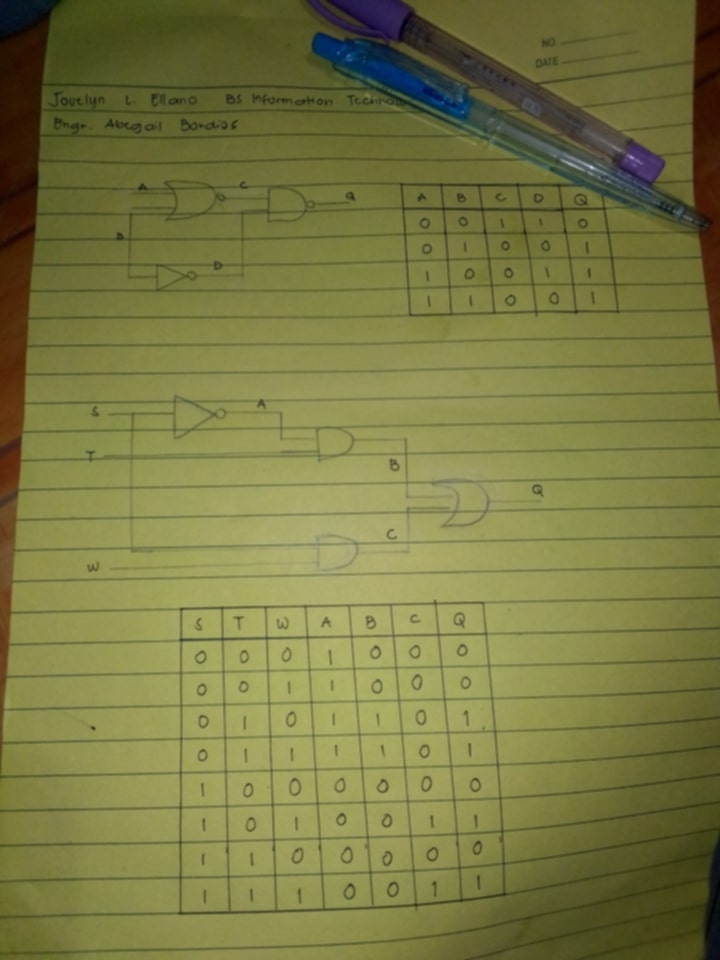 NO.
DATE
Jovelyn L. Ellano BS Information
Engr. Abegail Bordios
A C Q
B
D
A B C D Q
0 0 1 1 0
0 1 0 0 1
1 0 0 1 1
1 1 0 0 1
S A
T
B
Q
C
W
S T W A B C Q
0 0 0 1 0 0 0
0 0 1 1 0 0 0
0 1 0 1 1 0 1
0 1 1 1 1 0 1
1 0 0 0 0 0 0
1 0 1 0 0 1 1
1 1 0 0 0 0 0
1 1 1 0 0 1 1